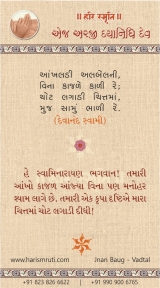 ॥ હરિ સ્મૃતિ ॥
એજ અરજી દયાનિધિ દેવ
આંખલડી અલબેલની,
વિના કાજળે કાળી રે;
ચોટ લગાડી ચિત્તમાં,
મુજ સામું ભાળી રે.
(દેવાનંદ સ્વામી)
હે સ્વામિનારાયણ ભગવાન! તમારી
આંખો કાજળ આંજ્યા વિના પણ મનોહર
શ્યામ લાગે છે. તમારી એક કૃપા દૃષ્ટિએ મારા
ચિત્તમાં ચોટ લગાડી દીધી!
www.harismruti.com
Jnan Baug - Vadtal
+91 823 826 6622 | +91 990 900 6765